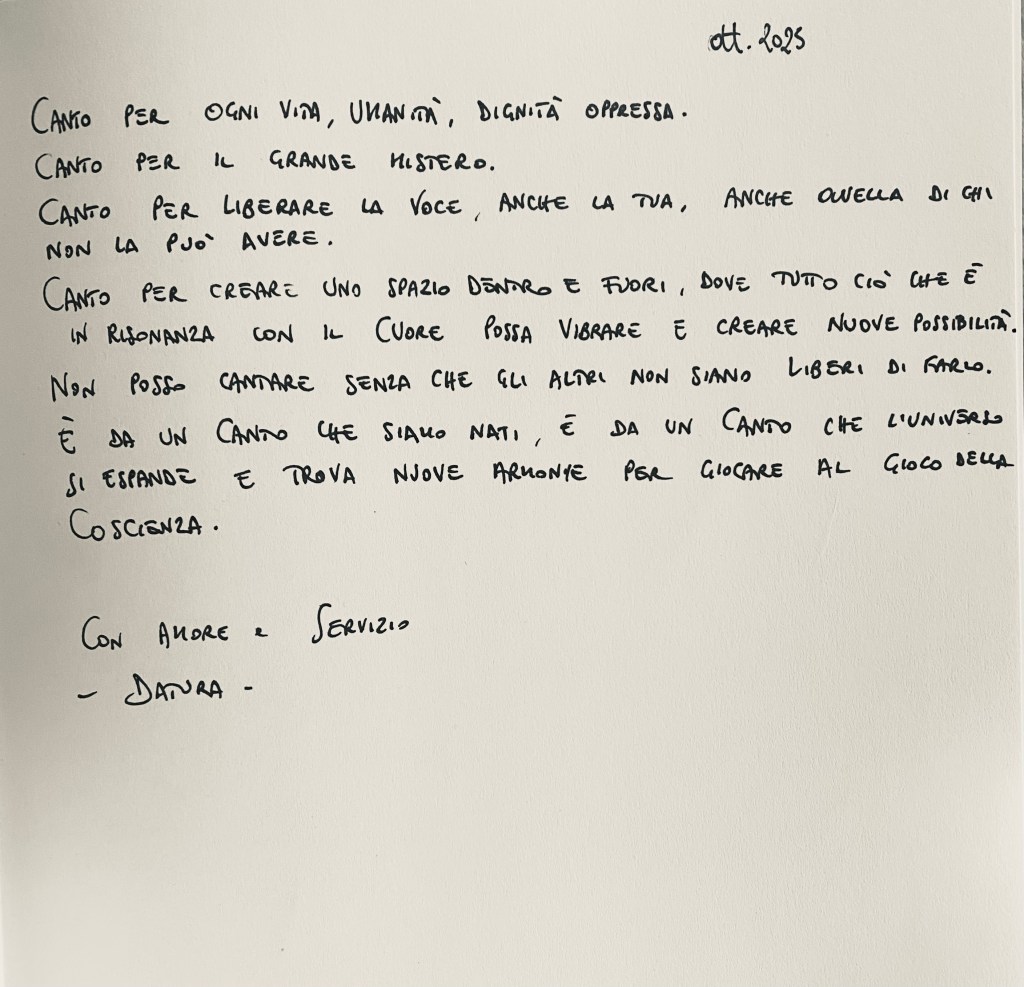 ott. 2025
CANTO PER OGNI VITA, UMANITÀ, DIGNITÀ OPPRESSA.
CANTO PER IL GRANDE MISTERO.
CANTO PER LIBERARE LA VOCE, ANCHE LA TUA, ANCHE QUELLA DI CHI
NON LA PUÒ AVERE.
CANTO PER CREARE UNO SPAZIO DENTRO E FUORI, DOVE TUTTO CIÒ CHE È
IN RISONANZA CON IL CUORE POSSA VIBRARE E CREARE NUOVE POSSIBILITÀ.
NON POSSO CANTARE SENZA CHE GLI ALTRI NON SIANO LIBERI DI FARLO.
È DA UN CANTO CHE SIAMO NATI, È DA UN CANTO CHE L'UNIVERSO
SI ESPANDE E TROVA NUOVE ARMONIE PER GIOCARE AL GIOCO DELLA
COSCIENZA.
CON AMORE e SERVIZIO
- DATURA -